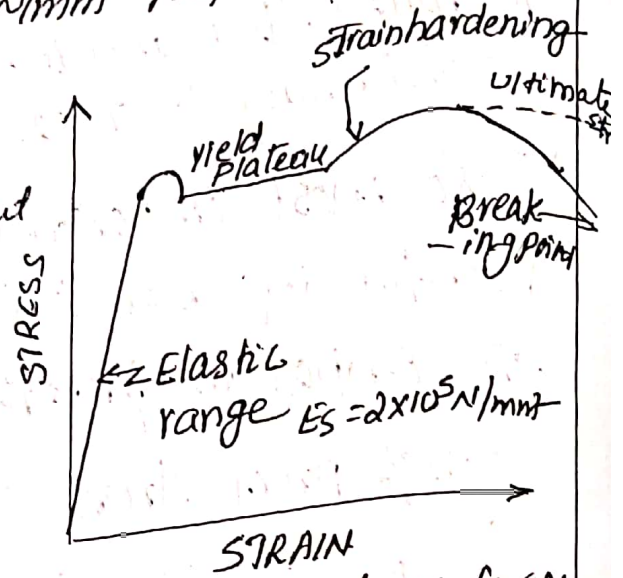 N/mm
Strainhardening
Ultimate
str
Yield
Plateau
Break-
-ing point
STRESS
Elastic
range Es = 2×10⁵ N/mm²
STRAIN